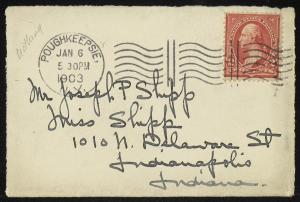 POUGHKEEPSIE
JAN 6
5 30 PM
1903
Mr Joseph P Shipp
Miss Shipp
1010 N. Delaware St
Indianapolis
Indiana.